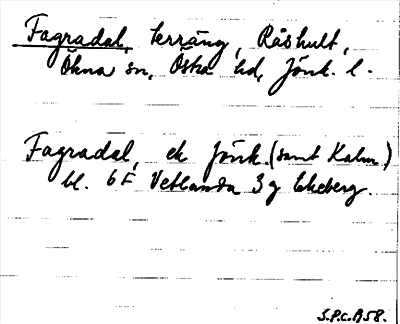 Fagradal, terräng, Råshult,
Ökna sn, Östra hd, Jönk. l.
Fagradal, ek Jönk. (samt Kalm.)
bl. 6F Vetlanda 3 g Ekeberg.
S.P.C. 1958.